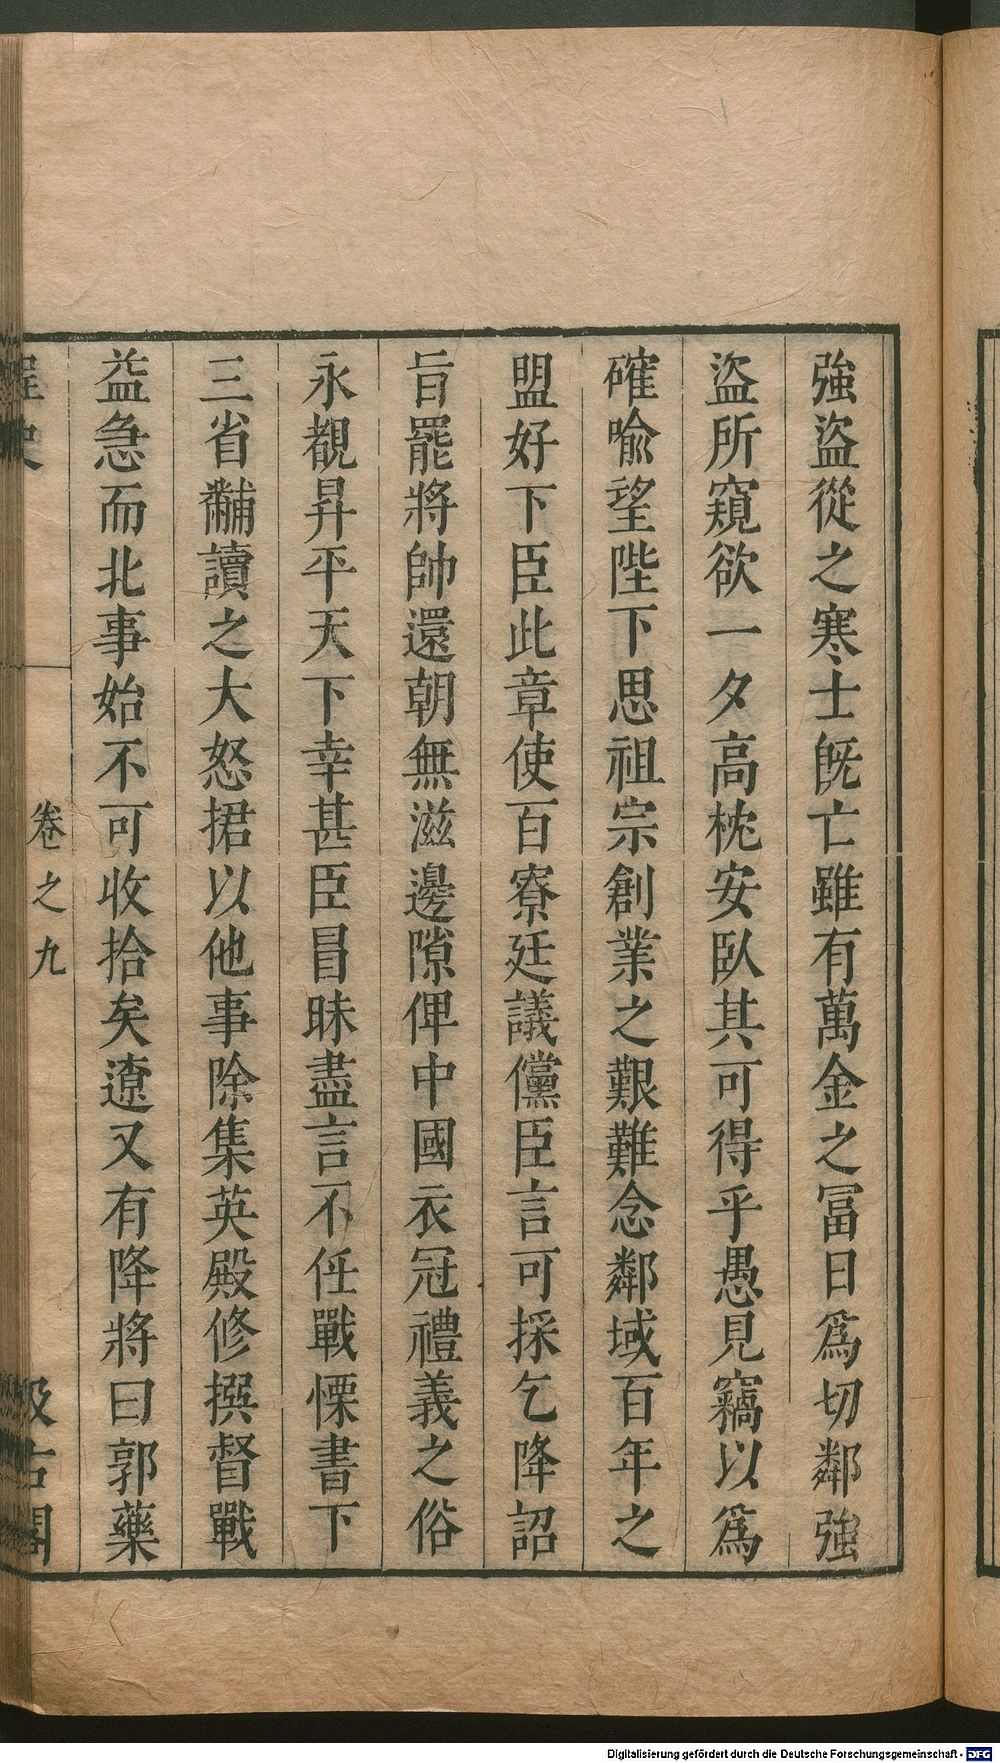 強盜從之寒士旣亡雖有萬金之冨日爲切鄰強
盜所窺欲一夕高枕安臥其可得乎愚見竊以爲
確喩望陛下思祖宗創業之艱難念鄰域百年之
盟好下臣此章使百寮廷議儻臣言可採乞降詔
旨罷將帥還朝無滋邊隙俾中國衣冠禮義之俗
永覩昇平天下幸甚臣昌昧盡言不任戰慄書下
三省黼讀之大怒捃以他事除集英殿修撰督戰
益急而北事始不可收拾矣遼又有降將曰郭藥
桯史
卷之九
汲古閣
Digitalisierung gefördert durch die Deutsche Forschungsgemeinschaft - DFG